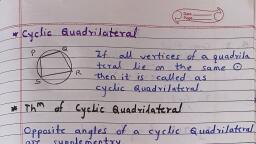 Date
Page
* Cyclic Quadrilateral
P Q
R
S
If all vertices of a quadrila
teral lie on the same ⊙
then it is called as
cyclic Quadrilateral.
* Thm of Cyclic Quadrilateral
Opposite angles of a cyclic Quadrilateral
are supplementry